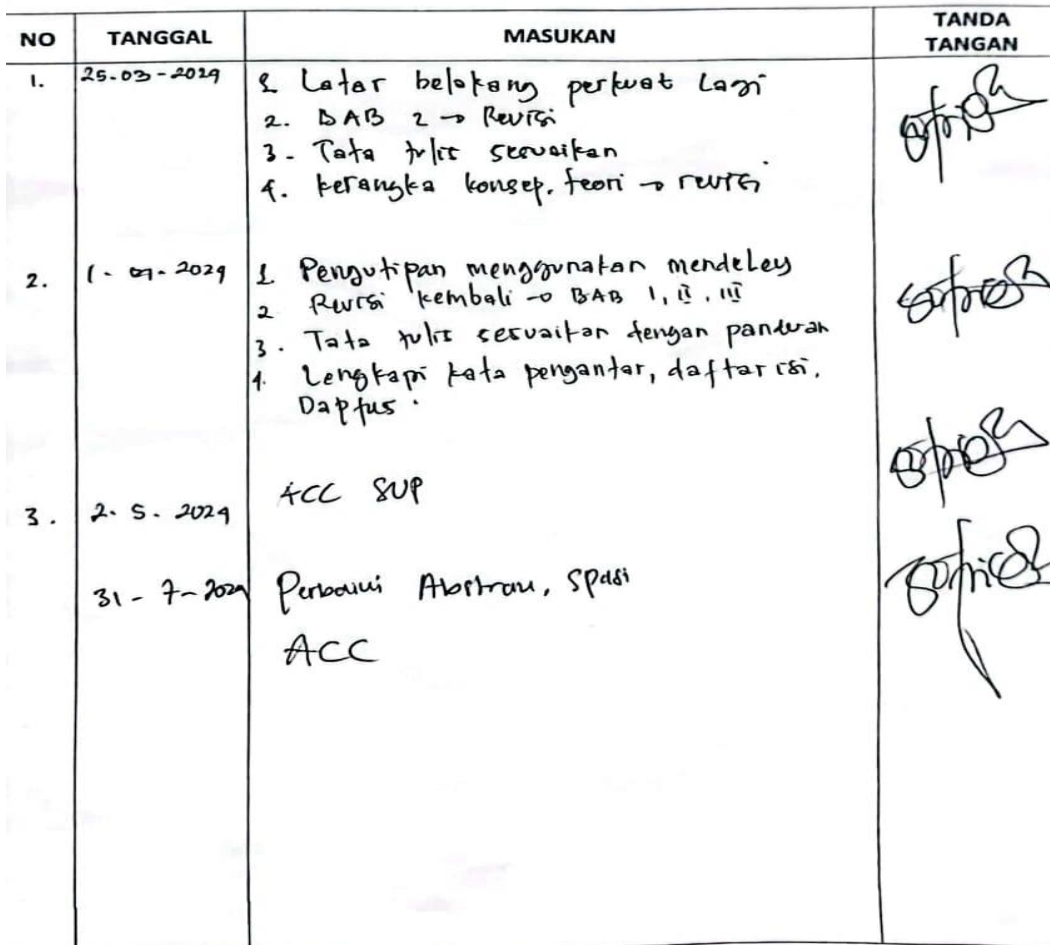 NO TANGGAL MASUKAN TANDA TANGAN
1. 25-03-2024 1. Latar belakang perkuat Lagi
2. BAB 2 → Revisi
3. Tata tulis sesuaikan
4. kerangka konsep, teori → revisi
2. 1-04-2024 1. Pengutipan menggunakan mendeley
2 Revisi kembali → BAB I, II, III
3. Tata tulis sesuaikan dengan panduan
4. Lengkapi kata pengantar, daftar isi,
Dapfus.
ACC SUP
3. 2.5.2024
31-7-2024 Perbaiki Abstrak, Spasi
ACC